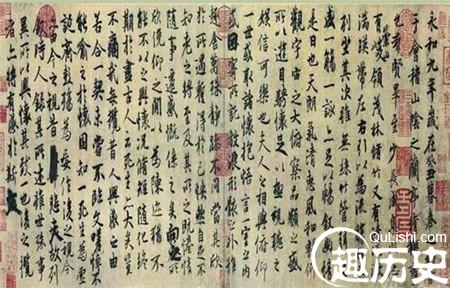 永和九年歲在癸丑暮春之初會
于會稽山陰之蘭亭脩稧事
也羣賢畢至少長咸集此地
有崇山峻領茂林脩竹又有清流激
湍暎帶左右引以為流觴曲水
列坐其次雖無絲竹管弦之
盛一觴一詠亦足以暢叙幽情
是日也天朗氣清惠風和暢仰
觀宇宙之大俯察品類之盛
所以遊目騁懷足以極視聽之
娛信可樂也夫人之相與俯仰
一世或取諸懷抱悟言一室之內
或因寄所託放浪形骸之外雖
趣舍萬殊靜躁不同當其欣
於所遇蹔得於己怏然自足不
知老之將至及其所之既惓情
隨事遷感慨係之矣向之所
欣俛仰之閒以為陳迹猶不
能不以之興懷況脩短隨化終
期於盡古人云死生亦大矣豈
不痛哉每攬昔人興感之由
若合一契未嘗不臨文嗟悼不
能喻之於懷固知一死生為虛
誕齊彭殤為妄作後之視今
亦由今之視昔悲夫故列
叙時人錄其所述雖世殊事
異所以興懷其致一也後之攬
者亦將有感於斯文
QuLiShi.com
趣历史